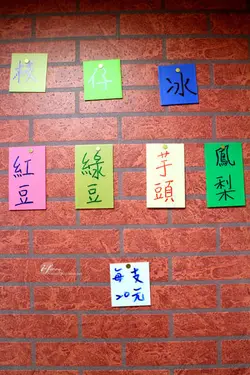 枝仔冰
紅豆
綠豆
芋頭
鳳梨
每支
20元